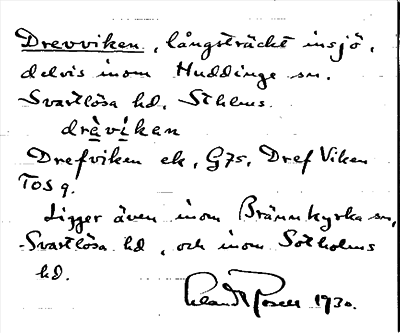 Drevviken, långsträckt insjö,
delvis inom Huddinge sn.
Svartlösa hd, Sthlms.
drèvíken
Drefviken ek, G75, Dref Viken
TOS 9.
Ligger även inom Brännkyrka sn,
Svartlösa hd, och inom Sotholms
hd.
1930.